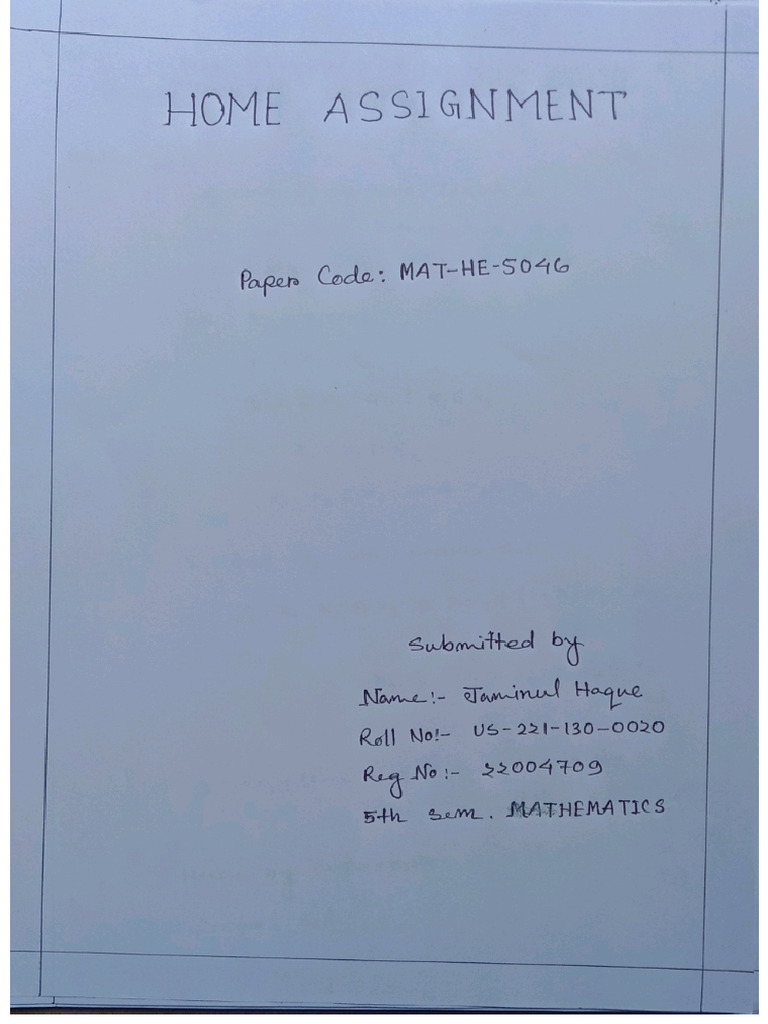 HOME ASSIGNMENT
Paper Code: MAT-HE-5046
Submitted by
Name:- Jaminul Haque
Roll No:- US-221-130-0020
Reg No:- 22004709
5th sem. MATHEMATICS